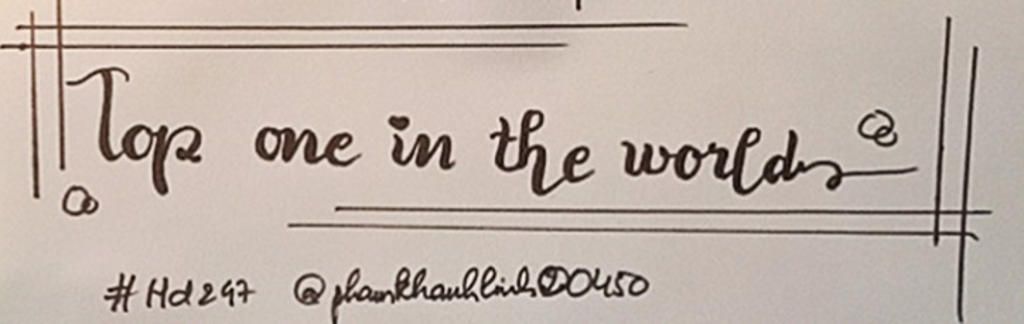 Top one in the world
#Hd297 @phamkhanhlinh20450